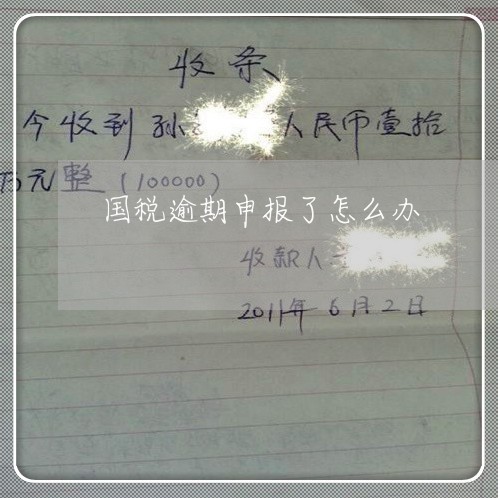 收条
今收到孙 人民币壹拾
万元整（100000）
国税逾期申报了怎么办
收款人
2011年6月2日